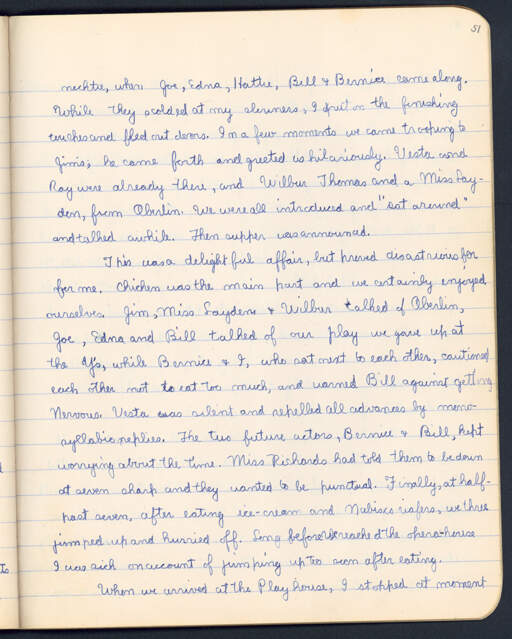 51
necktie, when Joe, Edna, Hattie, Bill & Bernice came along.
While they scolded at my slowness, I put on the finishing
touches and fled out doors. In a few moments we came trooping to
Jim's; he came forth and greeted us hilariously. Vesta and
Ray were already there, and Wilbur Thomas and a Miss Say-
den, from Oberlin. We were all introduced and "sat around"
and talked awhile. Then supper was announced.
This was a delightful affair, but proved disastrous for
for me. Chicken was the main part and we certainly enjoyed
ourselves. Jim, Miss Sayden & Wilbur talked of Oberlin,
Joe, Edna and Bill talked of our play we gave up at
the Y's, while Bernice & I, who sat next to each other, cautioned
each other not to eat too much, and warned Bill against getting
Nervous. Vesta was silent and repelled all advances by mono-
syllabic replies. The two future actors, Bernice & Bill, kept
worrying about the time. Miss Richards had told them to be down
at seven sharp and they wanted to be punctual. Finally, at half-
past seven, after eating ice-cream and Nabisco wafers, we three
jumped up and hurried off. Long before we reached the opera-house
I was sick on account of jumping up too soon after eating.
When we arrived at the Playhouse, I stopped at moment